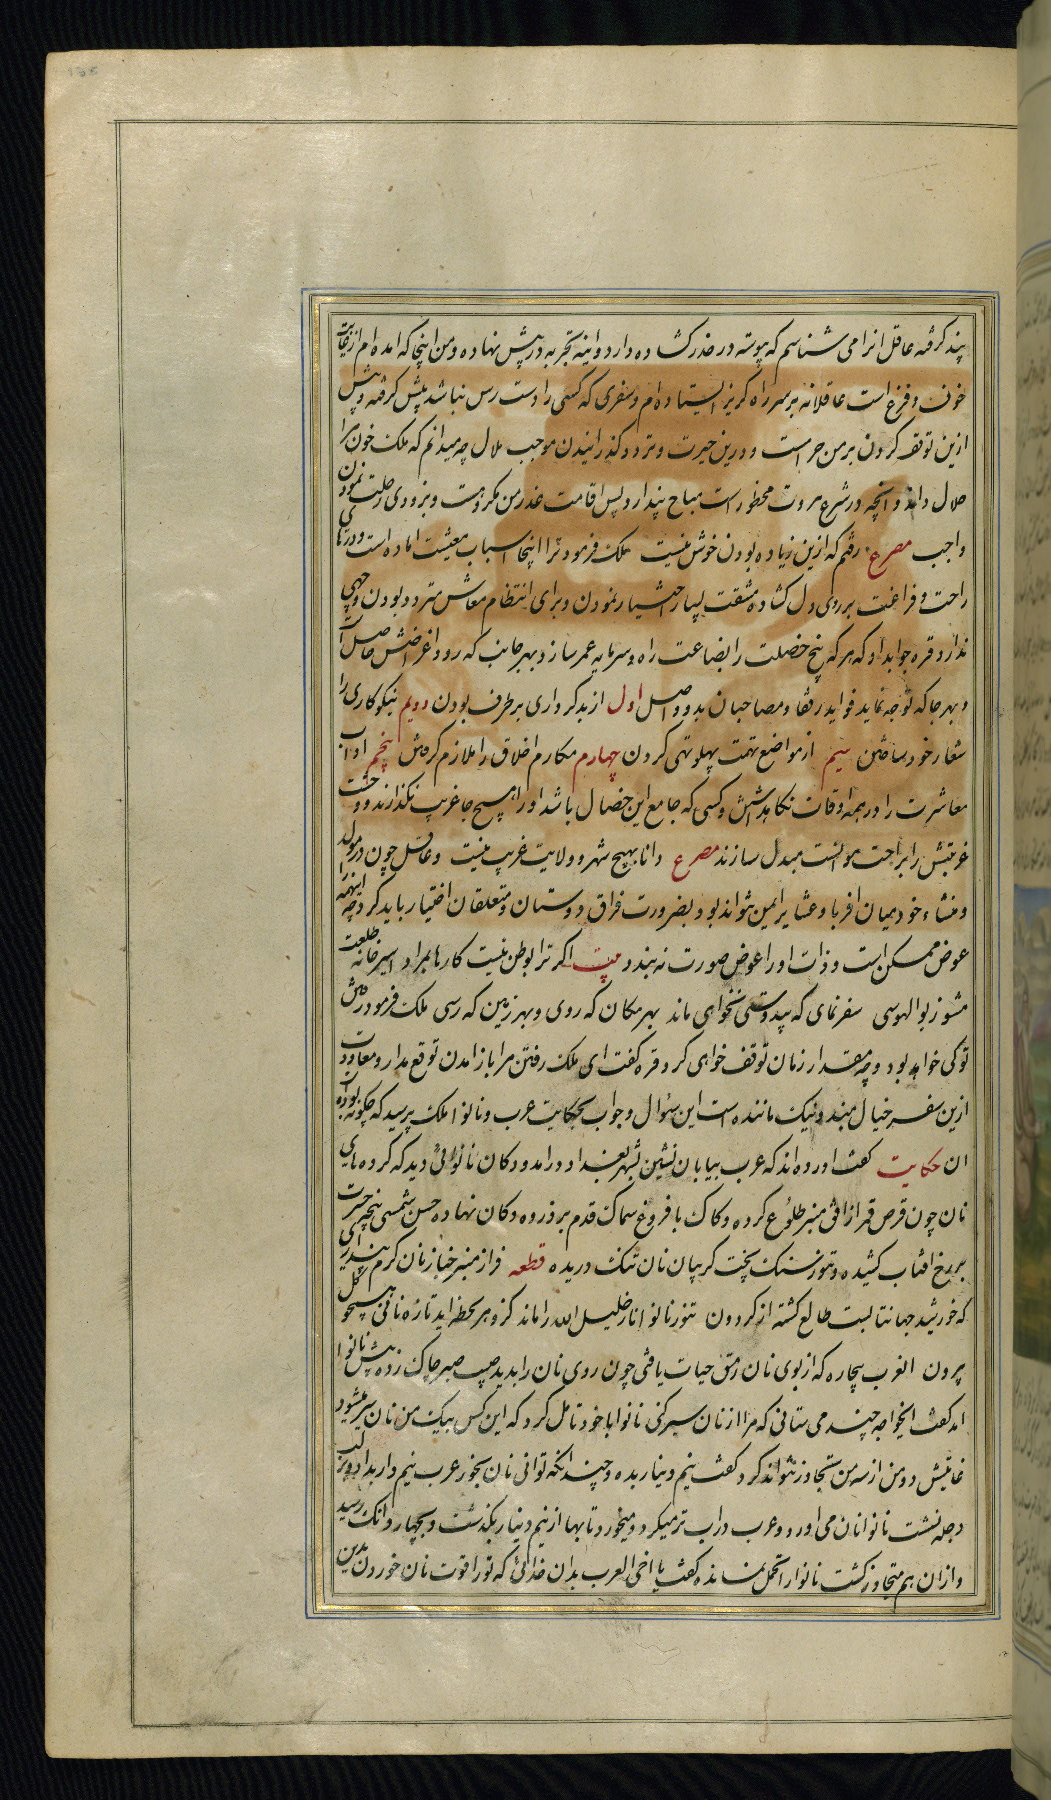 پند گرفته عاقل انرا می شناسم که پیوسته در حذر کشاده دارد و اینه تجربه در پیش نهاده و من اینجا که امده ام از غایت
خوف و فزع است عاقلانه بر سر راه گریز ایستاده ام و سفری که کسی را دست رس نباشد پیش گرفته و پیش
ازین توقف کردن بر من حرامست و درین حیرت و تردد گذرانیدن موجب ملال چه میدانم که ملک خون مرا
حلال داند و انچه در شرع مروت محظورست مباح پندارد پس اقامت عذر من مکروهست و بزودی رحلت نمودن
واجب مصرع رفتم که ازین زیاده بودن خوش نیست ملک فرمود ترا اینجا اسباب معیشت اماده است و درهای
راحت و فراغت بر روی دل کشاده مشقت بسیار اختیار نمودن و برای انتظام معاش متردد بودن وجهی
ندارد قره جوابداد که هر که پنج خصلت را بضاعت راه و سرمایه عمر سازد بهر جانب که رود اغراضش حاصل اید
و بهر جا که توجه نماید فواید رفقا و مصاحبان بدو واصل اول از بدکرداری برطرف بودن دویم نیکوکاری را
شعار خود ساختن سیم از مواضع تهمت پهلو تهی کردن چهارم مکارم اخلاق را ملازم گرفتن پنجم اداب
معاشرت را در همه اوقات نگاهداشتن و کسی که جامع این خصال باشد او را هیچ جا غریب نگذارند و وحشت
غربتش را براحت موانست مبدل سازند مصرع دانا بهیچ شهر و ولایت غریب نیست و عاقل چون در مولد
و منشاء خود میان اقربا و عشایر ایمن نتواند بود بضرورت فراق دوستان و متعلقان اختیار باید کرد چه اینهمه را
عوض ممکن است و ذات او را عوض صورت نه بندد بیت اگر ترا بوطن نیست کارها بمراد اسیر خانه
مشو ز بوالهوسی سفر نمای که بیدوستی نخواهی ماند بهر مکان که روی و بهر زمین که رسی ملک فرمود رفتن
تو کی خواهد بود و چه مقدار زمان توقف خواهی کرد قره گفت ای ملک رفتن مرا باز امدن توقع مدار و معاودت
ازین سفر خیال مبند و نیک ماننده است این سؤال و جواب بحکایت عرب و نانوا ملک پرسید که چگونه بوده
ان حکایت گفت اورده اند که عرب بیابان نشین بشهر بغداد درامد و دکان نانوائی دید که گرده های
نان چون قرص قمر از افق منبر طلوع کرده و کاک با فروغ سماک قدم بر ذروه دکان نهاده حسن شمسی پنجه حیرت
بر رخ افتاب کشیده و تنور سنک پخت گریبان نان تنک دریده قطعه فراز منبر خبازنان گرم پنداری
که خورشید جهانتابست طالع کشته از گردون تنور نانوا نار خلیل الله را ماند کزو هر لحظه اید تازه نانی همچو گل
بیرون العرب بیچاره که از بوی نان رمق حیات یافتی چون روی نان را بدید جیب صبر چاک زده پیش نانوا
امد گفت ایخواجه چند می ستانی که مرا از نان سیر کنی نانوا با خود تامل کرد که این کس بیک من نان سیر میشود
غایتش دو من از سه من تجاوز نتواند کرد گفت نیم دینار بده و چندانکه توانی نان بخور عرب نیم دینار بداد و بر لب
دجله نشست نانوا نان می اورد و عرب در اب تر میکرد و میخورد تا بها از نیم دینار بگذشت و بچهار دانک رسید
و از ان هم متجاوز گشت نانوا را تحمل نمانده گفت یا اخی العرب بدان خدائی که ترا قوت نان خوردن بدین